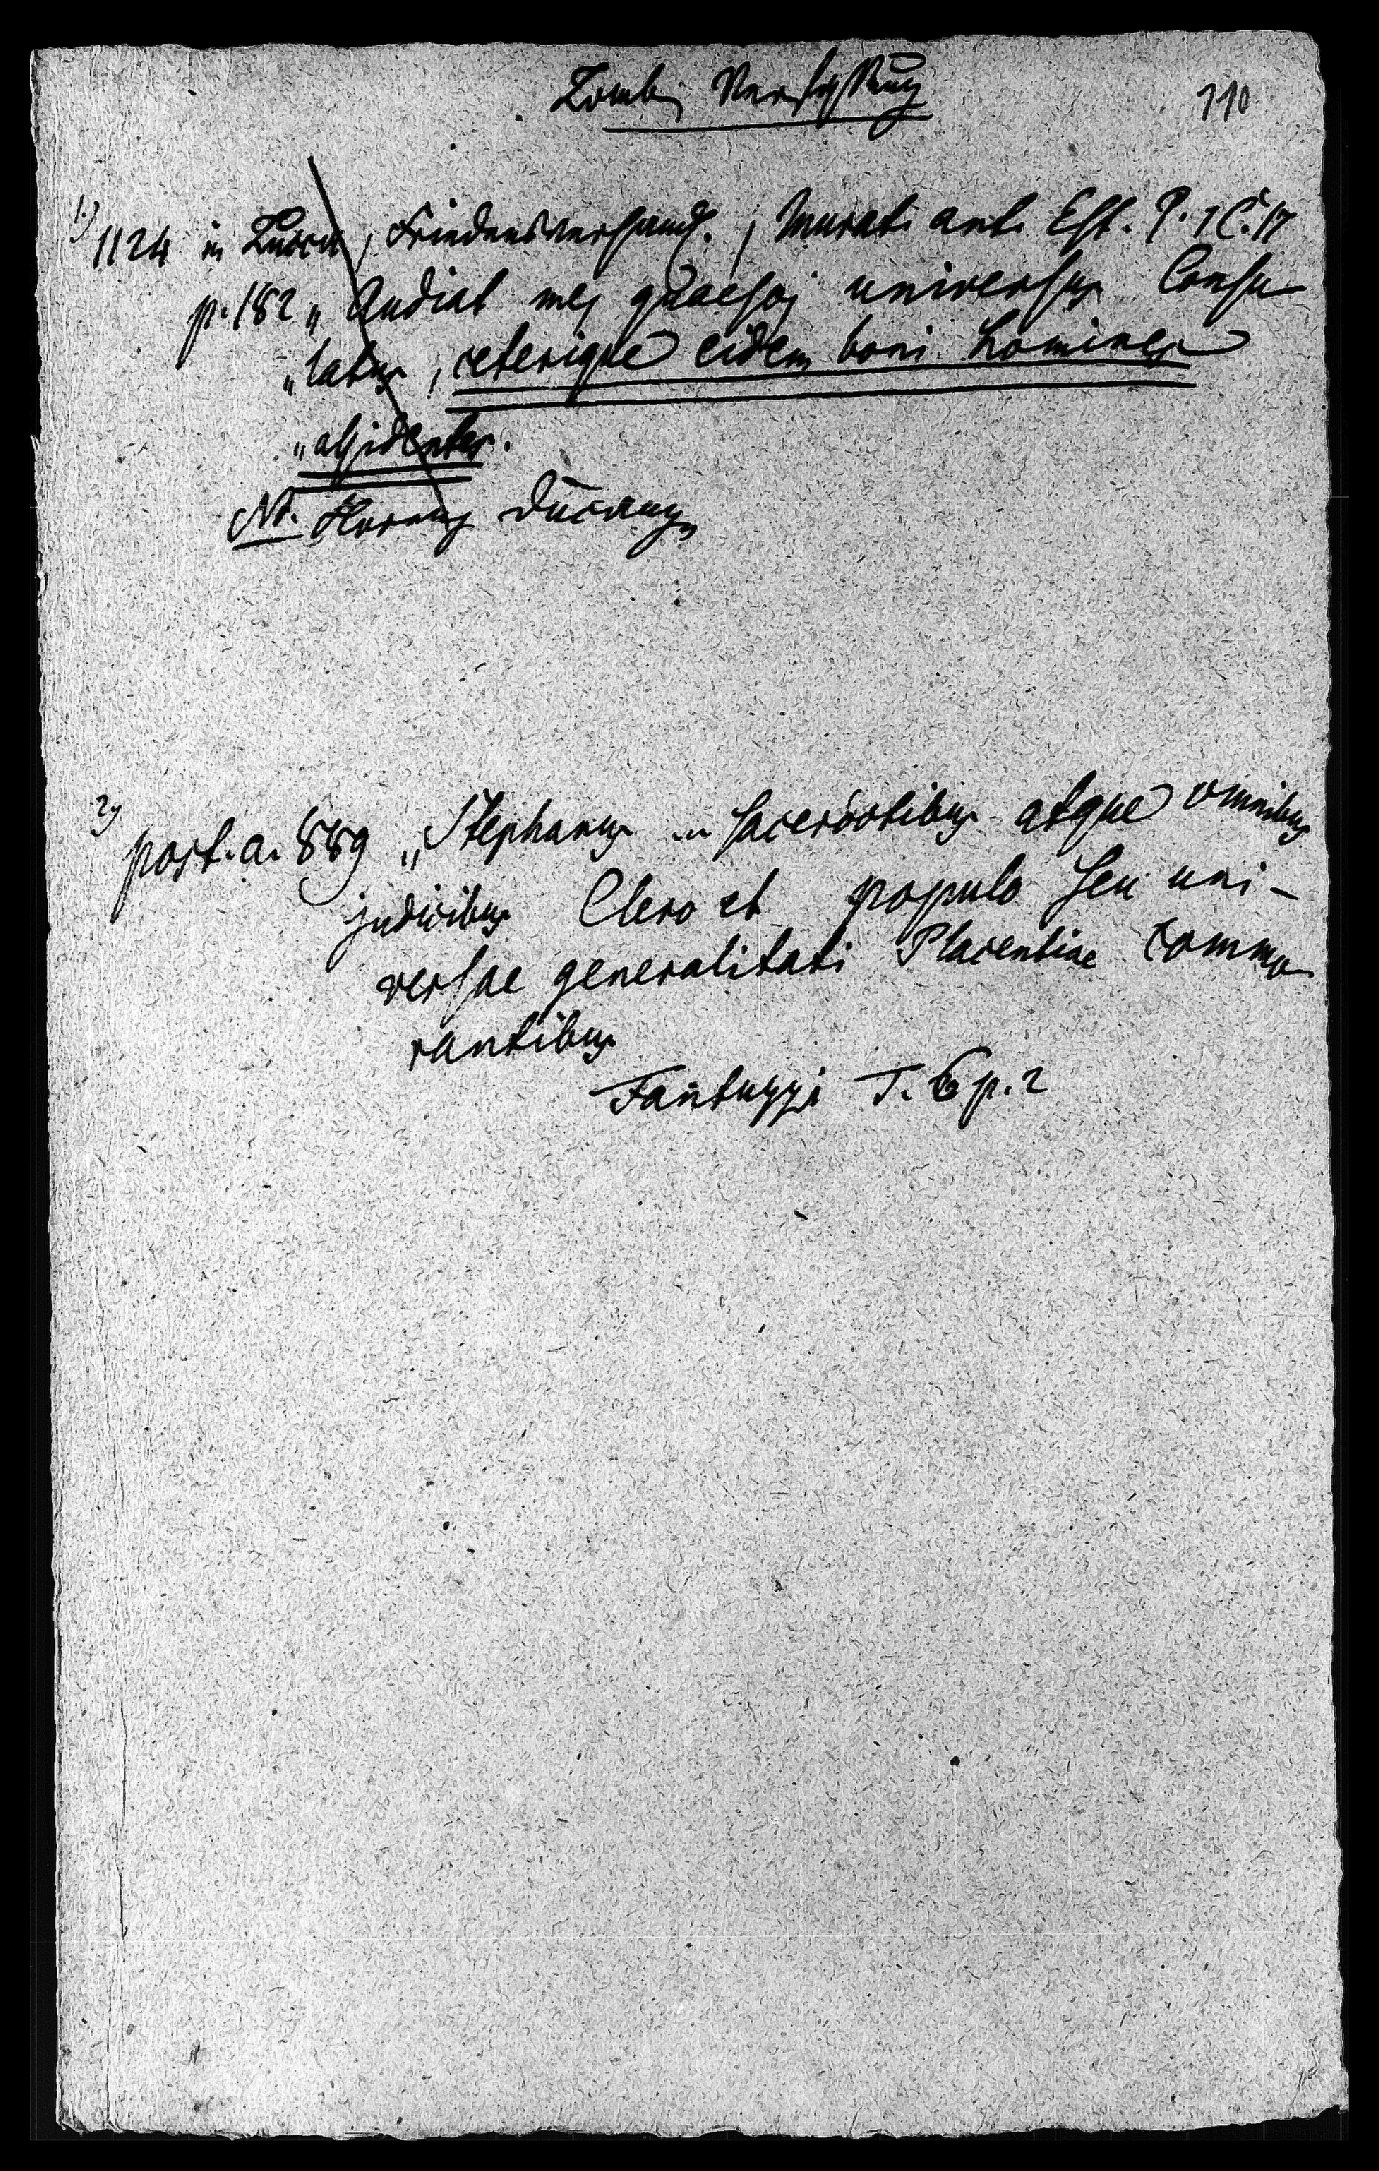 Lomb. Verfassung
110
1.) 1124 in Lucca, Friedensverhandl. / Murat. ant. Est. P. 1 C. 17
p. 182 „Audiat me, quaeso, universus Consu-
„latus, ceterique eidem boni homines
„assidentes.
Nb.
2) post. a. 889 „Stephanus ... sacerdotibus atque omnibus
judicibus Clero et populo seu uni-
versae generalitati Placentiae commo-
rantibus
Fantuzzi T. 6 p. 2